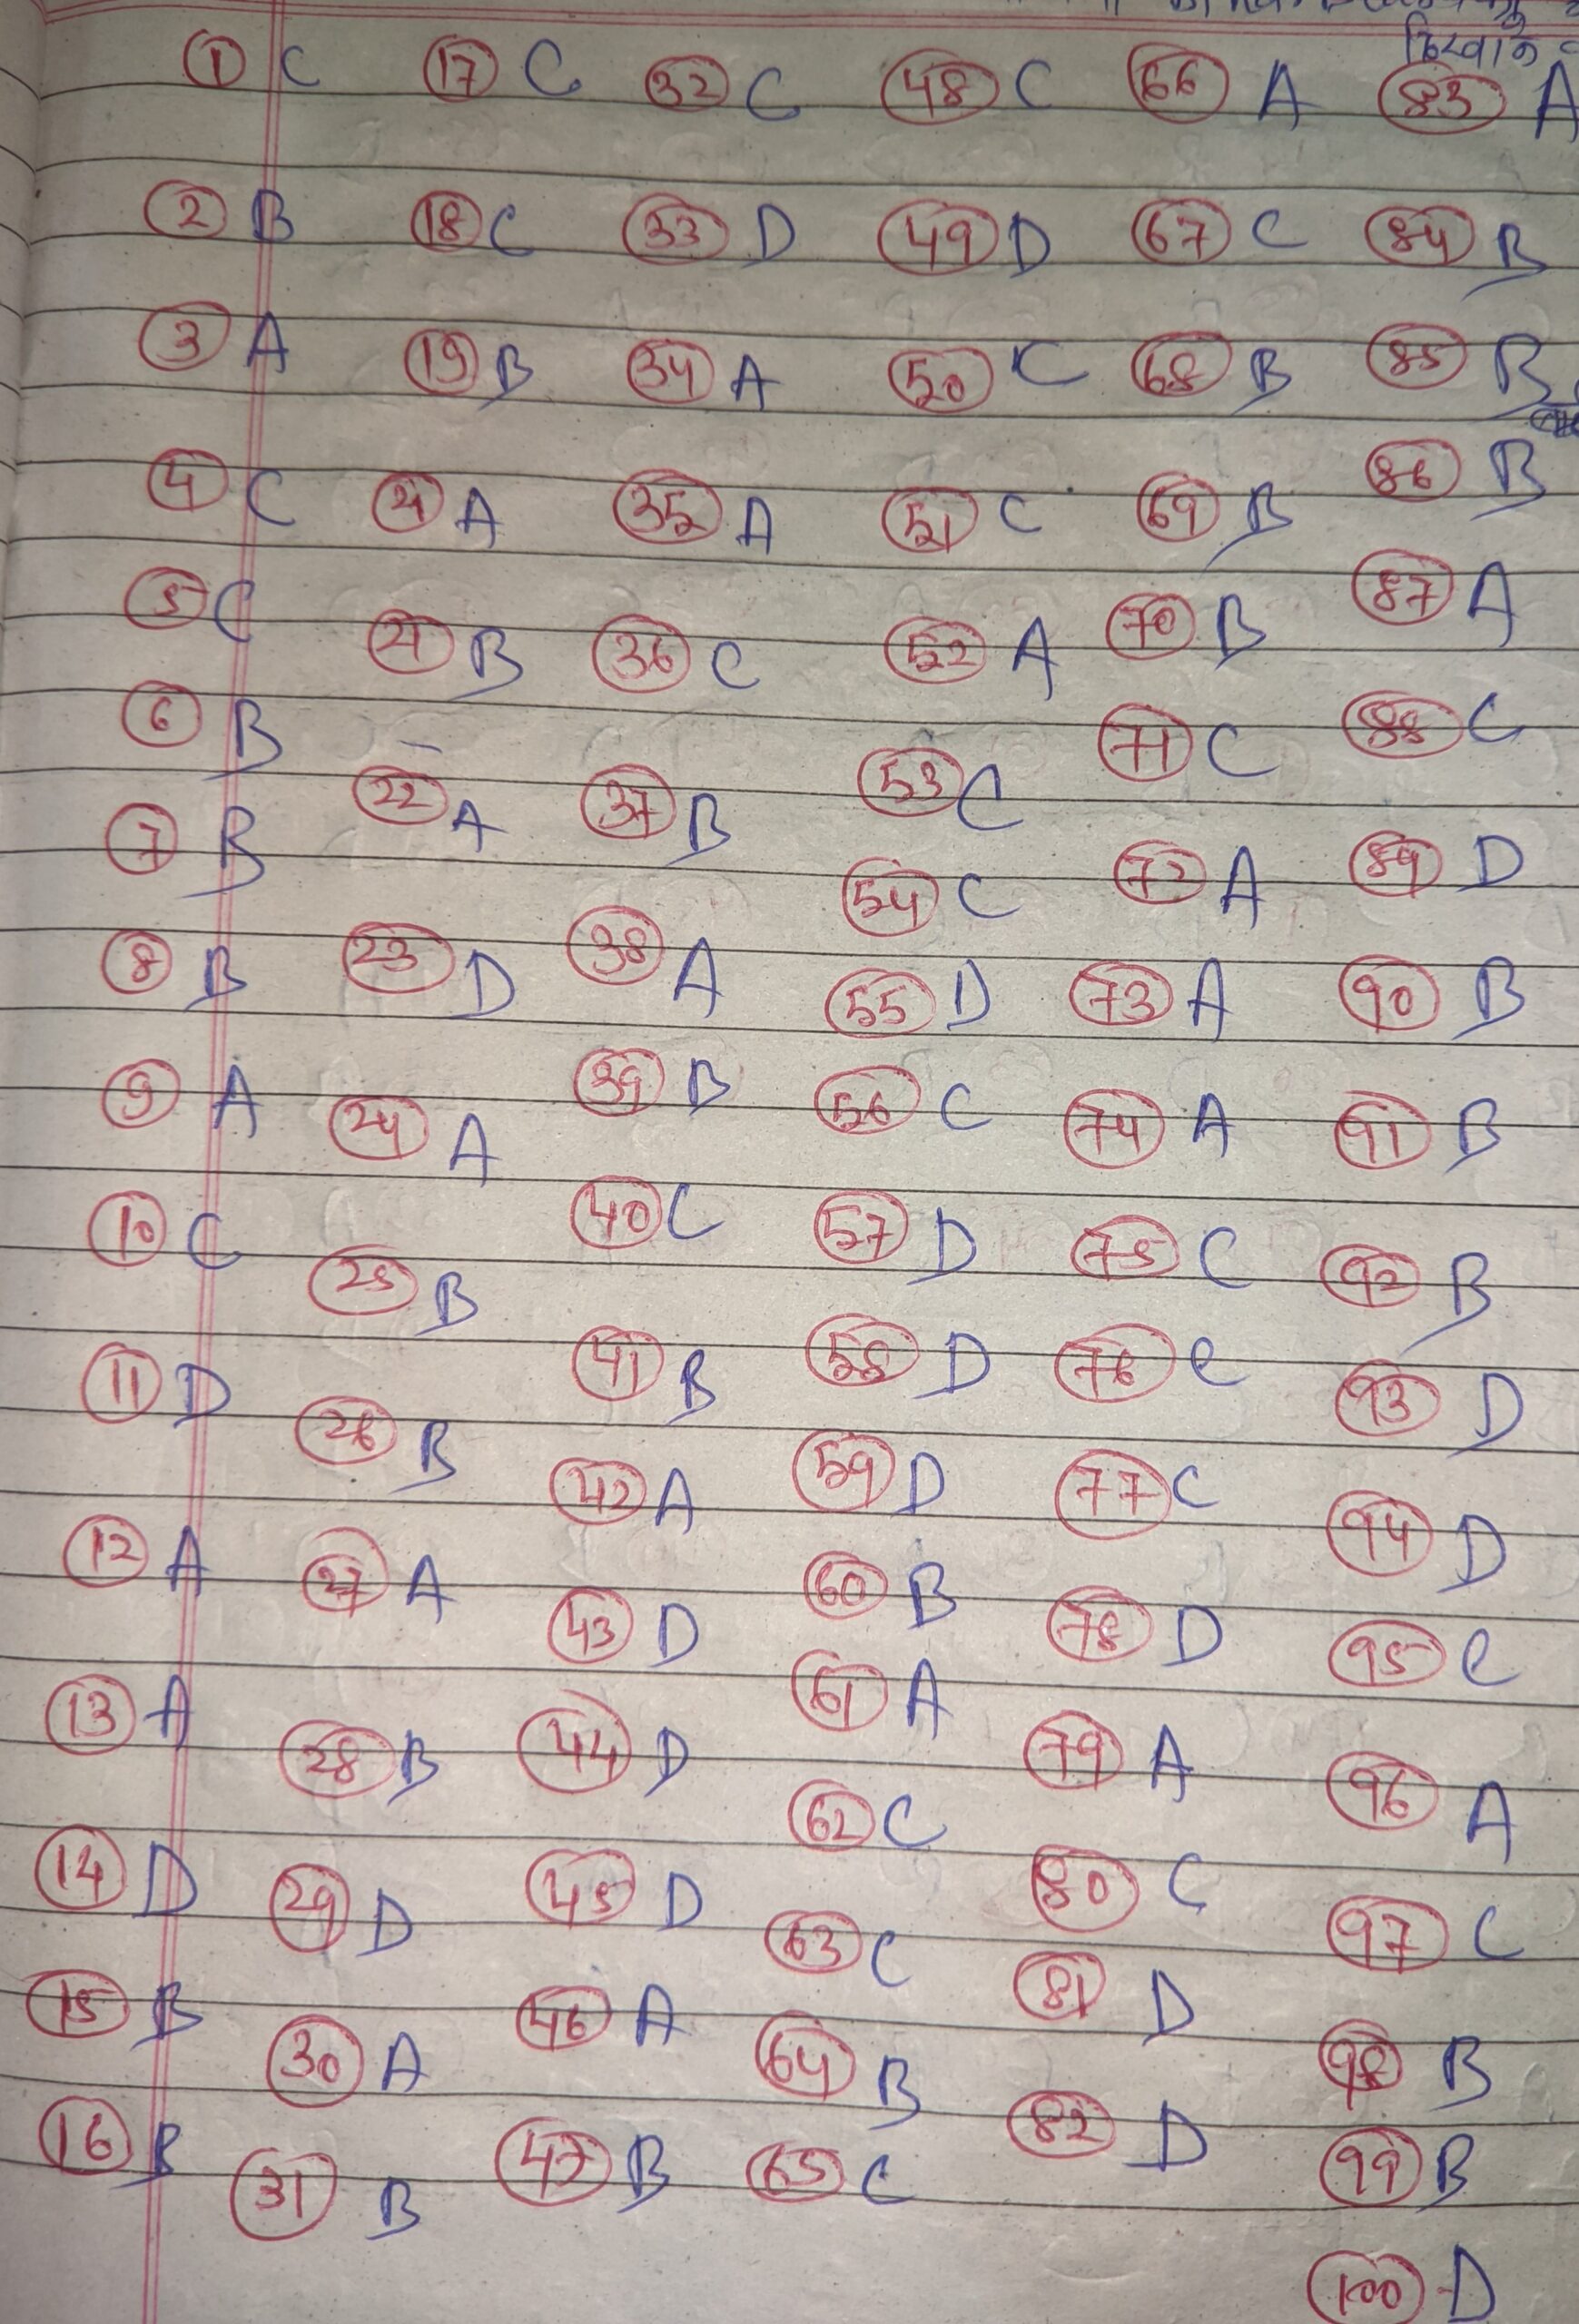 दिखाने
1 C
2 B
3 A
4 C
5 C
6 B
7 B
8 B
9 A
10 C
11 D
12 A
13 A
14 D
15 B
16 B
17 C
18 C
19 B
A
21 B
22 A
23 D
24 A
25 B
26 B
27 A
28 B
29 D
30 A
31 B
32 C
33 D
34 A
35 A
36 C
37 B
38 A
39 B
40 C
41 B
42 A
43 D
44 D
45 D
46 A
47 B
48 C
49 D
50 C
51 C
52 A
53 C
54 C
55 D
56 C
57 D
58 D
59 D
60 B
61 A
62 C
63 C
64 B
65 C
66 A
67 C
68 B
69 B
70 B
71 C
72 A
73 A
74 A
75 C
76 C
77 C
78 D
79 A
80 C
81 D
82 D
83 A
84 B
85 B
86 B
87 A
88 C
89 D
90 B
91 B
92 B
93 D
94 D
95 C
96 A
97 C
98 B
99 B
100 D